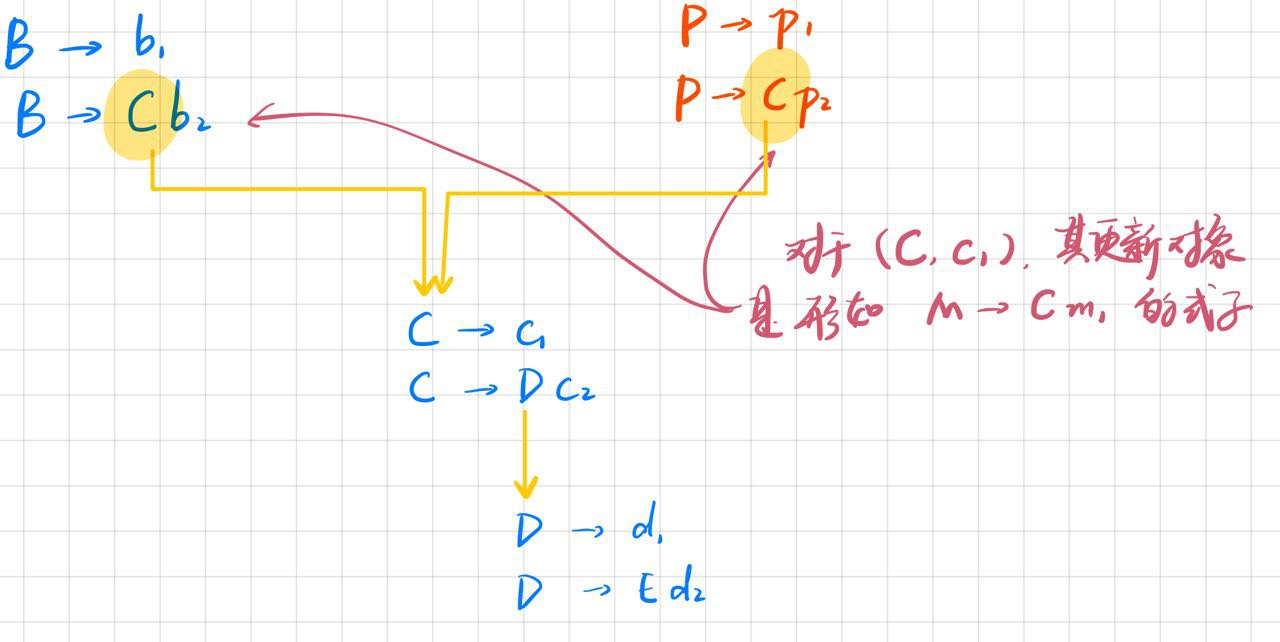 B → b₁
B → C b₂
P → p₁
P → C p₂
对于 (C, c₁), 其更新对象
是 形如 M → C m₁ 的式子
C → c₁
C → D c₂
D → d₁
D → E d₂